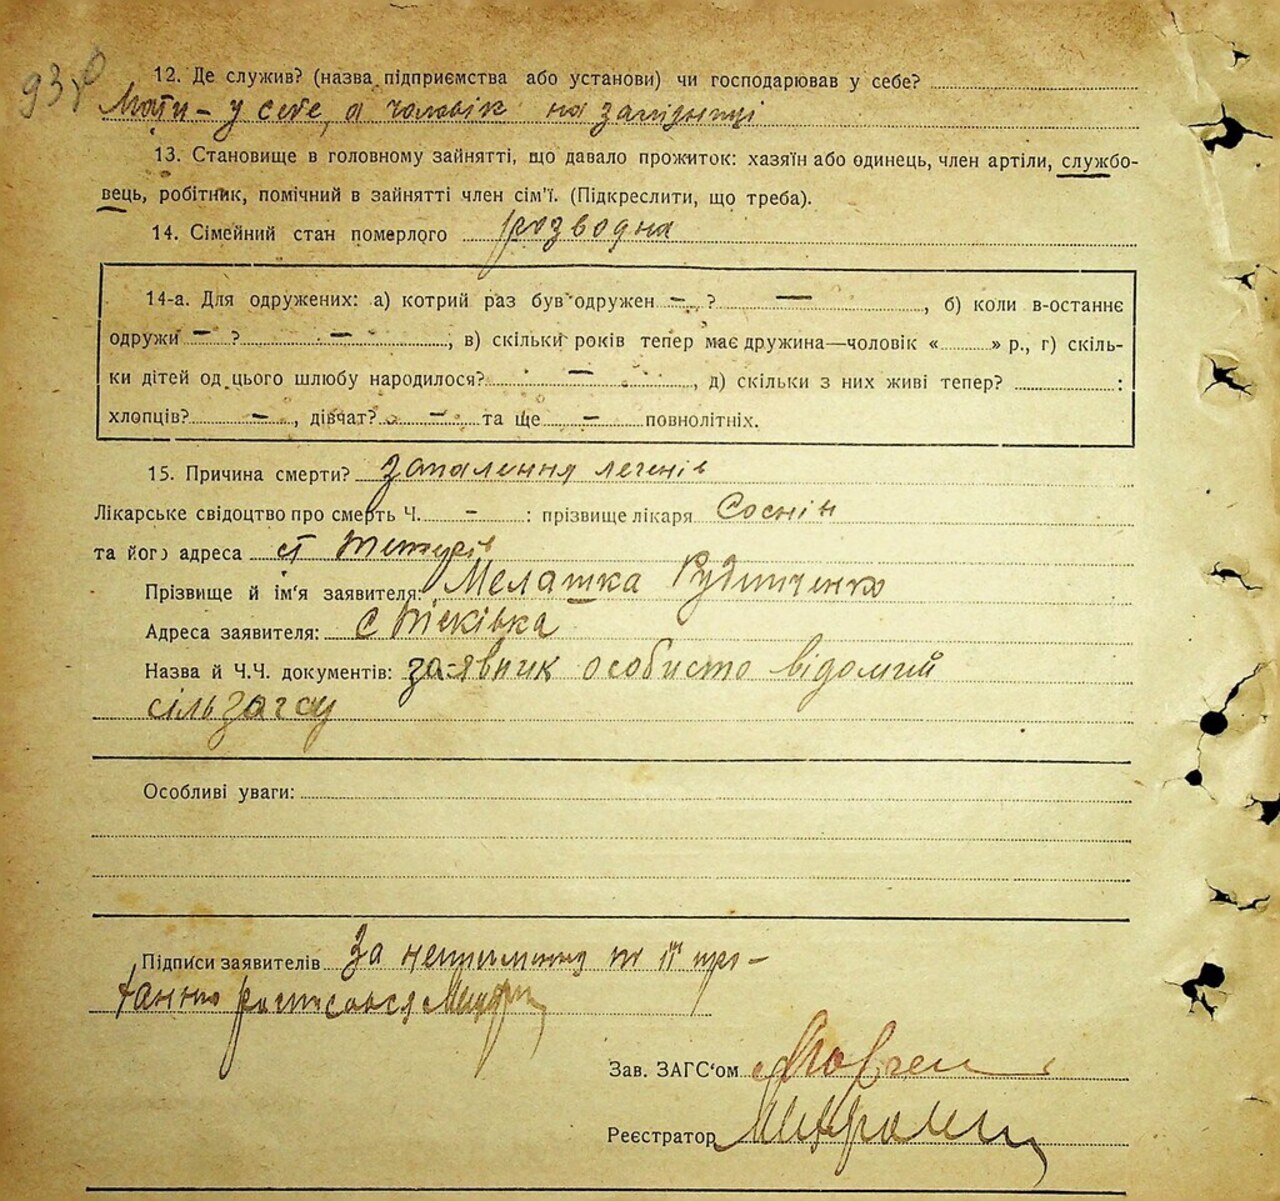 93
12. Де служив? (назва підприємства або установи) чи господарював у себе?
Мати – у себе, а чоловік на залізниці
13. Становище в головному зайнятті, що давало прожиток: хазяїн або одинець, член артіли, службо-
вець, робітник, помічний в зайнятті член сім'ї. (Підкреслити, що треба).
14. Сімейний стан померлого розводна
14-а. Для одружених: а) котрий раз був одружен – ? –, б) коли в-останнє
одружи – ? –, в) скільки років тепер має дружина—чоловік « » р., г) скіль-
ки дітей од цього шлюбу народилося? –, д) скільки з них живі тепер? :
хлопців? –, дівчат? – та ще – повнолітніх.
15. Причина смерти? Запалення легенів
Лікарське свідоцтво про смерть Ч. – : прізвище лікаря Соснін
та його адреса ст Тетерів
Прізвище й ім'я заявителя: Мелашка
Адреса заявителя: с Пісківка
Назва й Ч.Ч. документів: заявник особисто відомий
сільзагсу
Особливі уваги:
Підписи заявителів За неписьменну по її про–
ханню росписався
Зав. ЗАГС'ом
Реєстратор